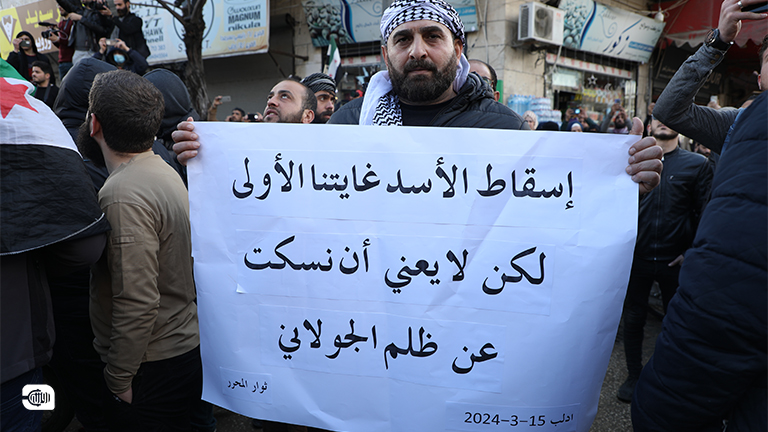 MAGNUM
إسقاط الأسد غايتنا الأولى
لكن لا يعني أن نسكت
عن ظلم الجولاني
ثوار المحرر
ادلب 15-3-2024